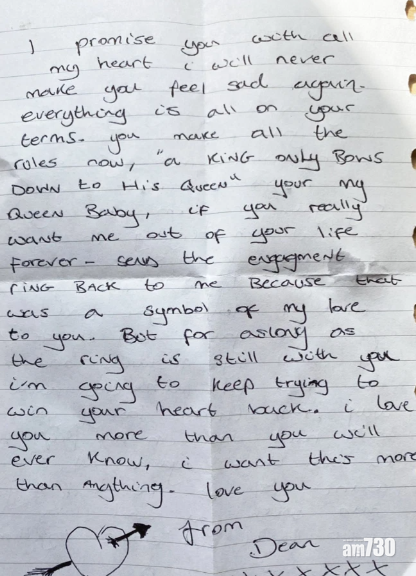 I promise you with all
my heart i will never
make you feel sad again.
everything is all on your
terms. you make all the
rules now, "a KING only Bows
Down to His Queen" your my
Queen Baby, if you really
want me out of your life
forever - send the engagment
ring BACK to me Because that
was a symbol of my love
to you. But for aslong as
the ring is still with you
i'm going to keep trying to
win your heart back. i love
you more than you will
ever know, i want this more
than Anything. love you
from
Dean
xxxxxx
am730